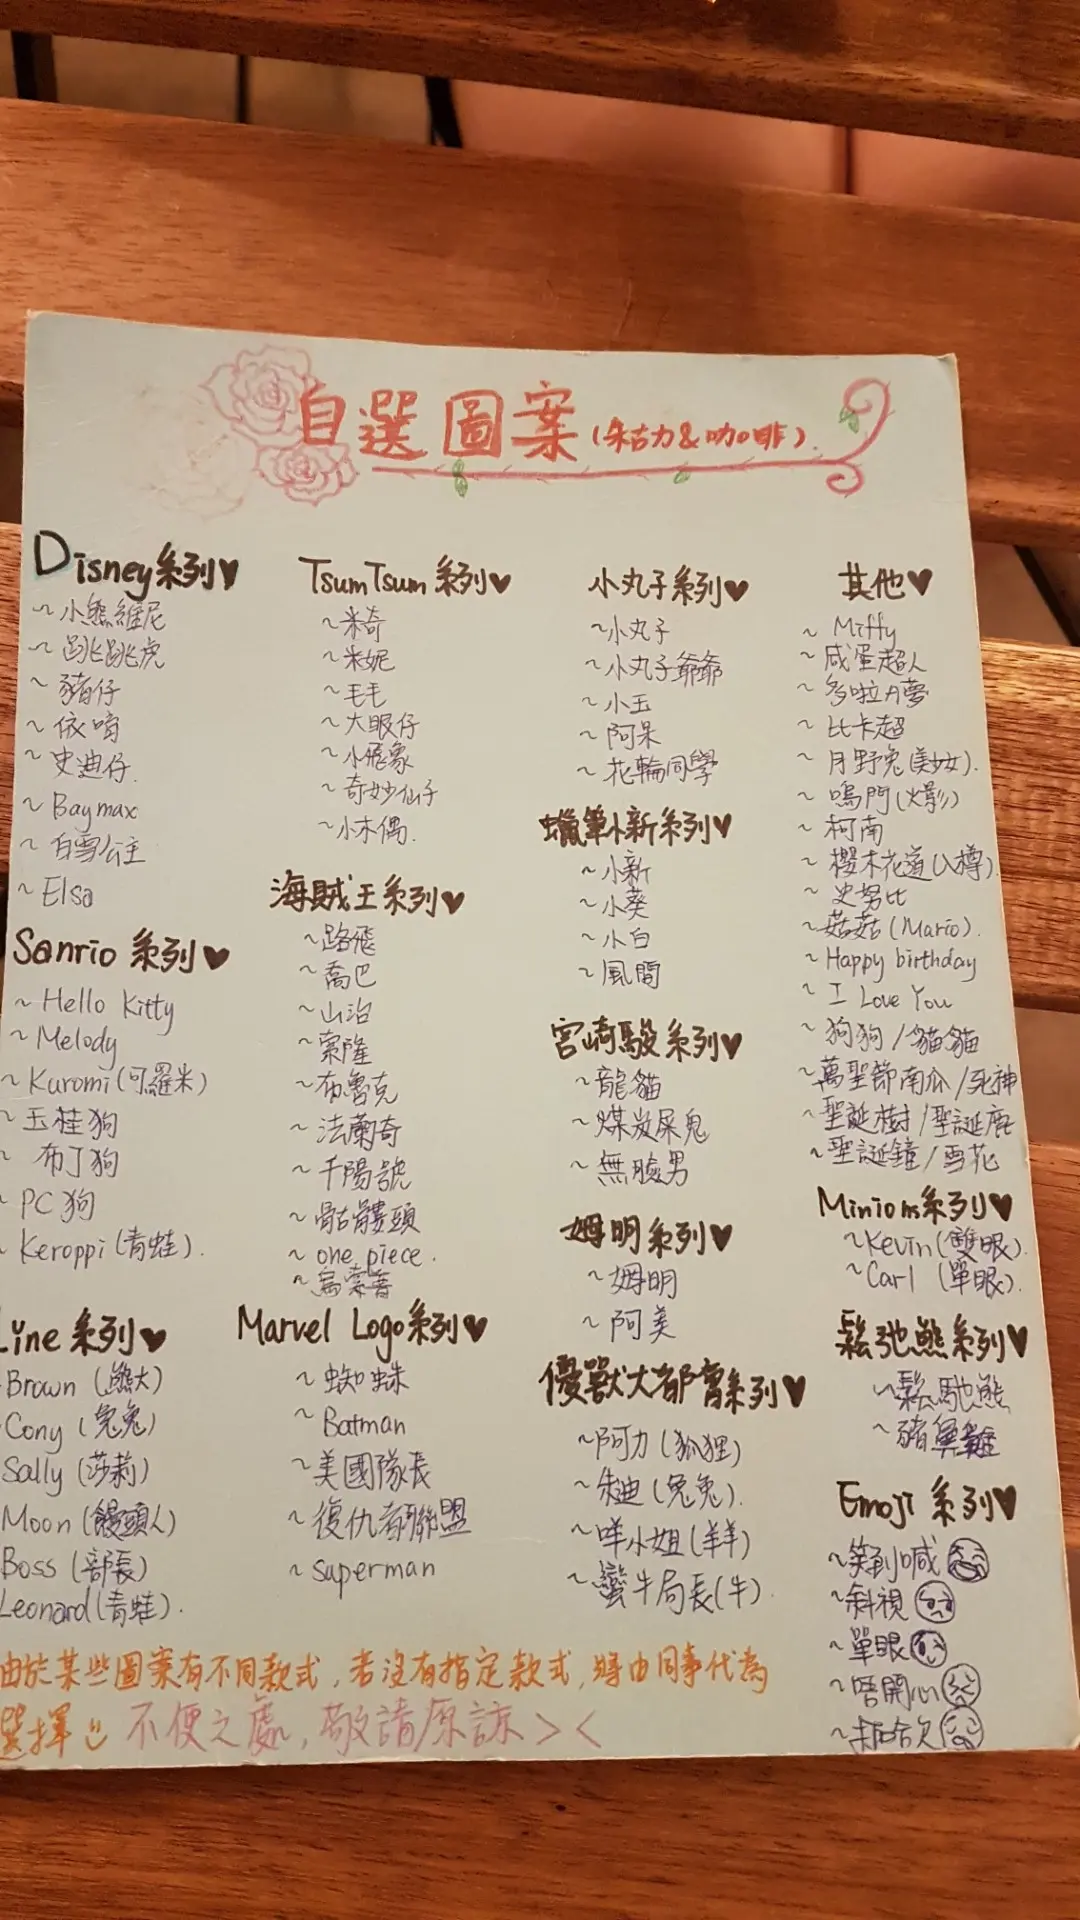 自選圖案(朱古力&咖啡).
Disney系列♥
~小熊維尼
~跳跳虎
~豬仔
~依唷
~史迪仔.
~Baymax
~白雪公主
~Elsa
Sanrio系列♥
~Hello Kitty
~Melody
~Kuromi(可羅米)
~玉桂狗
~布丁狗
~PC狗
~Keroppi(青蛙).
Line系列♥
Brown(熊大)
Cony(兔兔)
Sally(莎莉)
Moon(饅頭人)
Boss(部長)
Leonard(青蛙).
TsumTsum系列♥
~米奇
~米妮
~毛毛
~大眼仔
~小飛象
~奇妙仙子
~小木偶.
海賊王系列♥
~路飛
~喬巴
~山治
~索隆
~布魯克
~法蘭奇
~千陽號
~骷髏頭
~one piece.
~烏索普
Marvel Logo系列♥
~蜘蛛
~Batman
~美國隊長
~復仇者聯盟
~superman
小丸子系列♥
~小丸子
~小丸子爺爺
~小玉
~阿呆
~花輪同學
蠟筆小新系列♥
~小新
~小葵
~小白
~風間
宮崎駿系列♥
~龍貓
~煤炭屎鬼
~無臉男
姆明系列♥
~姆明
~阿美
優獸大都會系列♥
~阿力(狐狸)
~朱迪(兔兔).
~咩小姐(羊羊)
~蠻牛局長(牛).
其他♥
~Miffy
~咸蛋超人
~多啦A夢
~比卡超
~月野兔(美少女).
~鳴門(火影)
~柯南
~櫻木花道(入樽).
~史努比
~菇菇(Mario).
~Happy birthday
~I Love You
~狗狗/貓貓
~萬聖節南瓜/死神
~聖誕樹/聖誕鹿
~聖誕鐘/雪花
Minions系列♥
~Kevin(雙眼).
~Carl(單眼).
鬆弛熊系列♥
~鬆馳熊
~豬鼻雞
Emoji系列♥
~笑到喊
~斜視
~單眼
~唔開心
~打哈欠
由於某些圖案有不同款式,若沒有指定款式,將由同事代為
選擇 不便之處,敬請原諒><